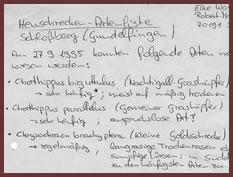 Elke Wo
Robert-
70191 S
Heuschrecken-Artenliste
Schloßberg (Gundelfingen)
Am 27.9.1995 konnten folgende Arten na
wiesen werden:
• Chorthippus biguttulus (Nachtigall-Grashüpfer)
→ sehr häufig; meist auf mäßig trockenen
• Chorthippus parallelus (Gemeiner Grashüpfer)
→ sehr häufig; anspruchslose Art!
• Chrysochraon brachyptera (Kleine Goldschrecke)
→ regelmäßig, langrasige Trockenrasen
sumpfige Wiesen; in Südd
zu den häufigsten Arten zu